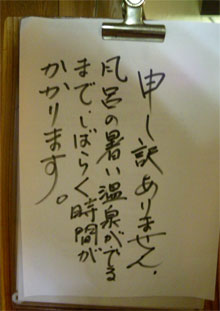 申し訳ありません.
風呂の暑い温泉がでる
まで、しばらく時間が
かかります。